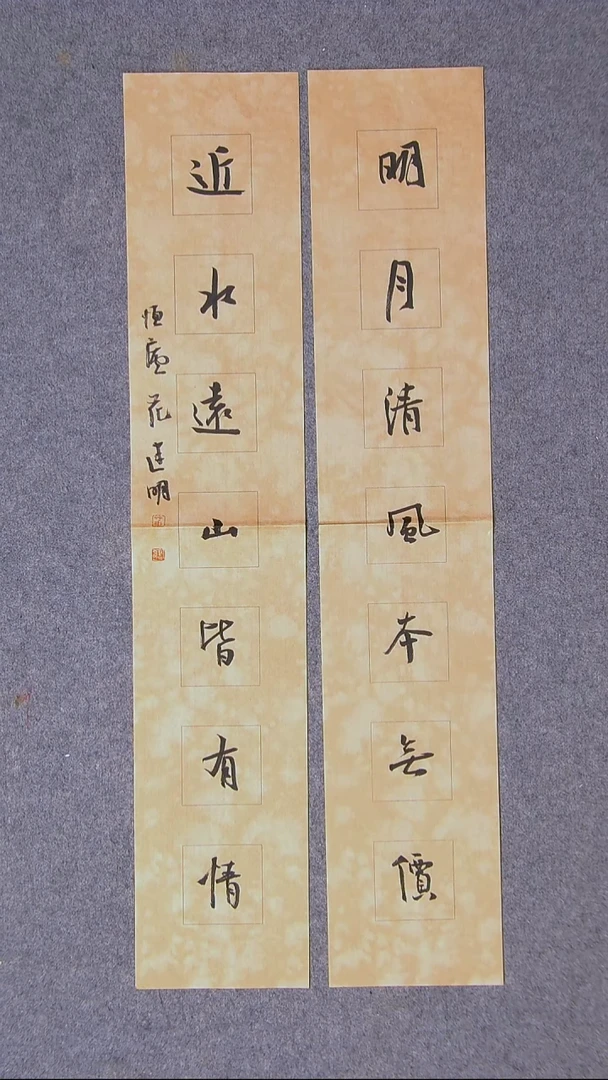 明月清風本無價
近水遠山皆有情
恒廬花達明